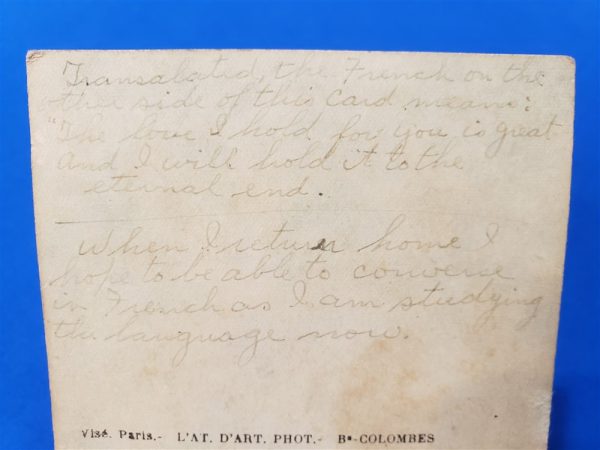 Transalated, the French on the
other side of this card means:
"The love I hold for you is great
and I will hold it to the
eternal end.
When I return home I
hope to be able to converse
in French as I am studying
the language now.
Visé. Paris.- L'AT. D'ART. PHOT.- Bs-COLOMBES